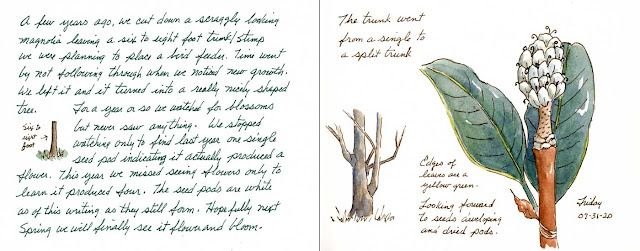 A few years ago, we cut down a scraggly looking
magnolia leaving a six to eight foot trunk/stump
we were planning to place a bird feeder. Time went
by not following through when we noticed new growth.
We left it and it turned into a really nicely shaped
tree. For a year or so we watched for blossoms
but never saw anything. We stopped
watching only to find last year one single
seed pod indicating it actually produced a
flower. This year we missed seeing flowers only to
learn it produced four. The seed pods are white
as of this writing as they still form. Hopefully next
Spring we will finally see it flower and bloom.
Six to
eight
foot
The trunk went
from a single to
a split trunk
Edges of
leaves are a
yellow green.
Looking forward
to seeds developing
and dried pods.
Friday
07-31-20